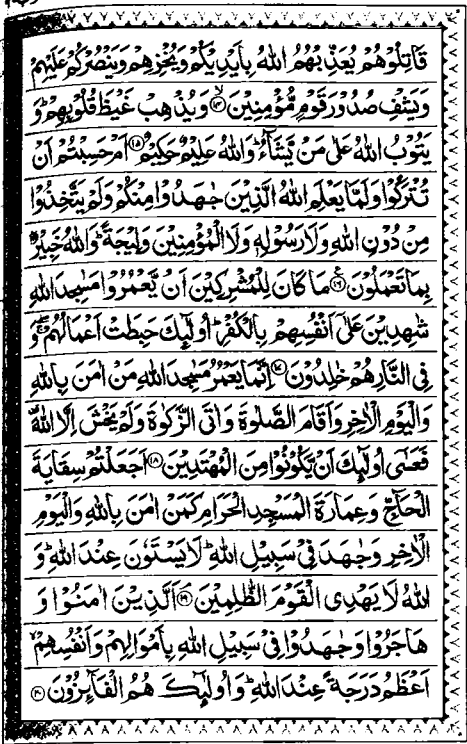 قَاتِلُوْهُمْ يُعَذِّبْهُمُ اللّٰهُ بِاَيْدِيْكُمْ وَيُخْزِهِمْ وَيَنْصُرْكُمْ عَلَيْهِمْ
وَيَشْفِ صُدُوْرَ قَوْمٍ مُّؤْمِنِيْنَ ۙ﴿۱۴﴾ وَيُذْهِبْ غَيْظَ قُلُوْبِهِمْ ؕ وَ
يَتُوْبُ اللّٰهُ عَلٰى مَنْ يَّشَآءُ ؕ وَاللّٰهُ عَلِيْمٌ حَكِيْمٌ ﴿۱۵﴾ اَمْ حَسِبْتُمْ اَنْ
تُتْرَكُوْا وَلَمَّا يَعْلَمِ اللّٰهُ الَّذِيْنَ جٰهَدُوْا مِنْكُمْ وَلَمْ يَتَّخِذُوْا
مِنْ دُوْنِ اللّٰهِ وَلَا رَسُوْلِهٖ وَلَا الْمُؤْمِنِيْنَ وَلِيْجَةً ؕ وَاللّٰهُ خَبِيْرٌۢ
بِمَا تَعْمَلُوْنَ ﴿۱۶﴾ مَا كَانَ لِلْمُشْرِكِيْنَ اَنْ يَّعْمُرُوْا مَسٰجِدَ اللّٰهِ
شٰهِدِيْنَ عَلٰٓى اَنْفُسِهِمْ بِالْكُفْرِ ؕ اُولٰٓئِكَ حَبِطَتْ اَعْمَالُهُمْ ۖۚ وَ
فِى النَّارِ هُمْ خٰلِدُوْنَ ﴿۱۷﴾ اِنَّمَا يَعْمُرُ مَسٰجِدَ اللّٰهِ مَنْ اٰمَنَ بِاللّٰهِ
وَالْيَوْمِ الْاٰخِرِ وَاَقَامَ الصَّلٰوةَ وَاٰتَى الزَّكٰوةَ وَلَمْ يَخْشَ اِلَّا اللّٰهَ
فَعَسٰٓى اُولٰٓئِكَ اَنْ يَّكُوْنُوْا مِنَ الْمُهْتَدِيْنَ ﴿۱۸﴾ اَجَعَلْتُمْ سِقَايَةَ
الْحَآجِّ وَعِمَارَةَ الْمَسْجِدِ الْحَرَامِ كَمَنْ اٰمَنَ بِاللّٰهِ وَالْيَوْمِ
الْاٰخِرِ وَجٰهَدَ فِيْ سَبِيْلِ اللّٰهِ ؕ لَا يَسْتَوٗنَ عِنْدَ اللّٰهِ ؕ وَ
اللّٰهُ لَا يَهْدِى الْقَوْمَ الظّٰلِمِيْنَ ﴿۱۹﴾ اَلَّذِيْنَ اٰمَنُوْا وَ
هَاجَرُوْا وَجٰهَدُوْا فِيْ سَبِيْلِ اللّٰهِ بِاَمْوَالِهِمْ وَاَنْفُسِهِمْ ۙ
اَعْظَمُ دَرَجَةً عِنْدَ اللّٰهِ ؕ وَاُولٰٓئِكَ هُمُ الْفَآئِزُوْنَ ﴿۲۰﴾